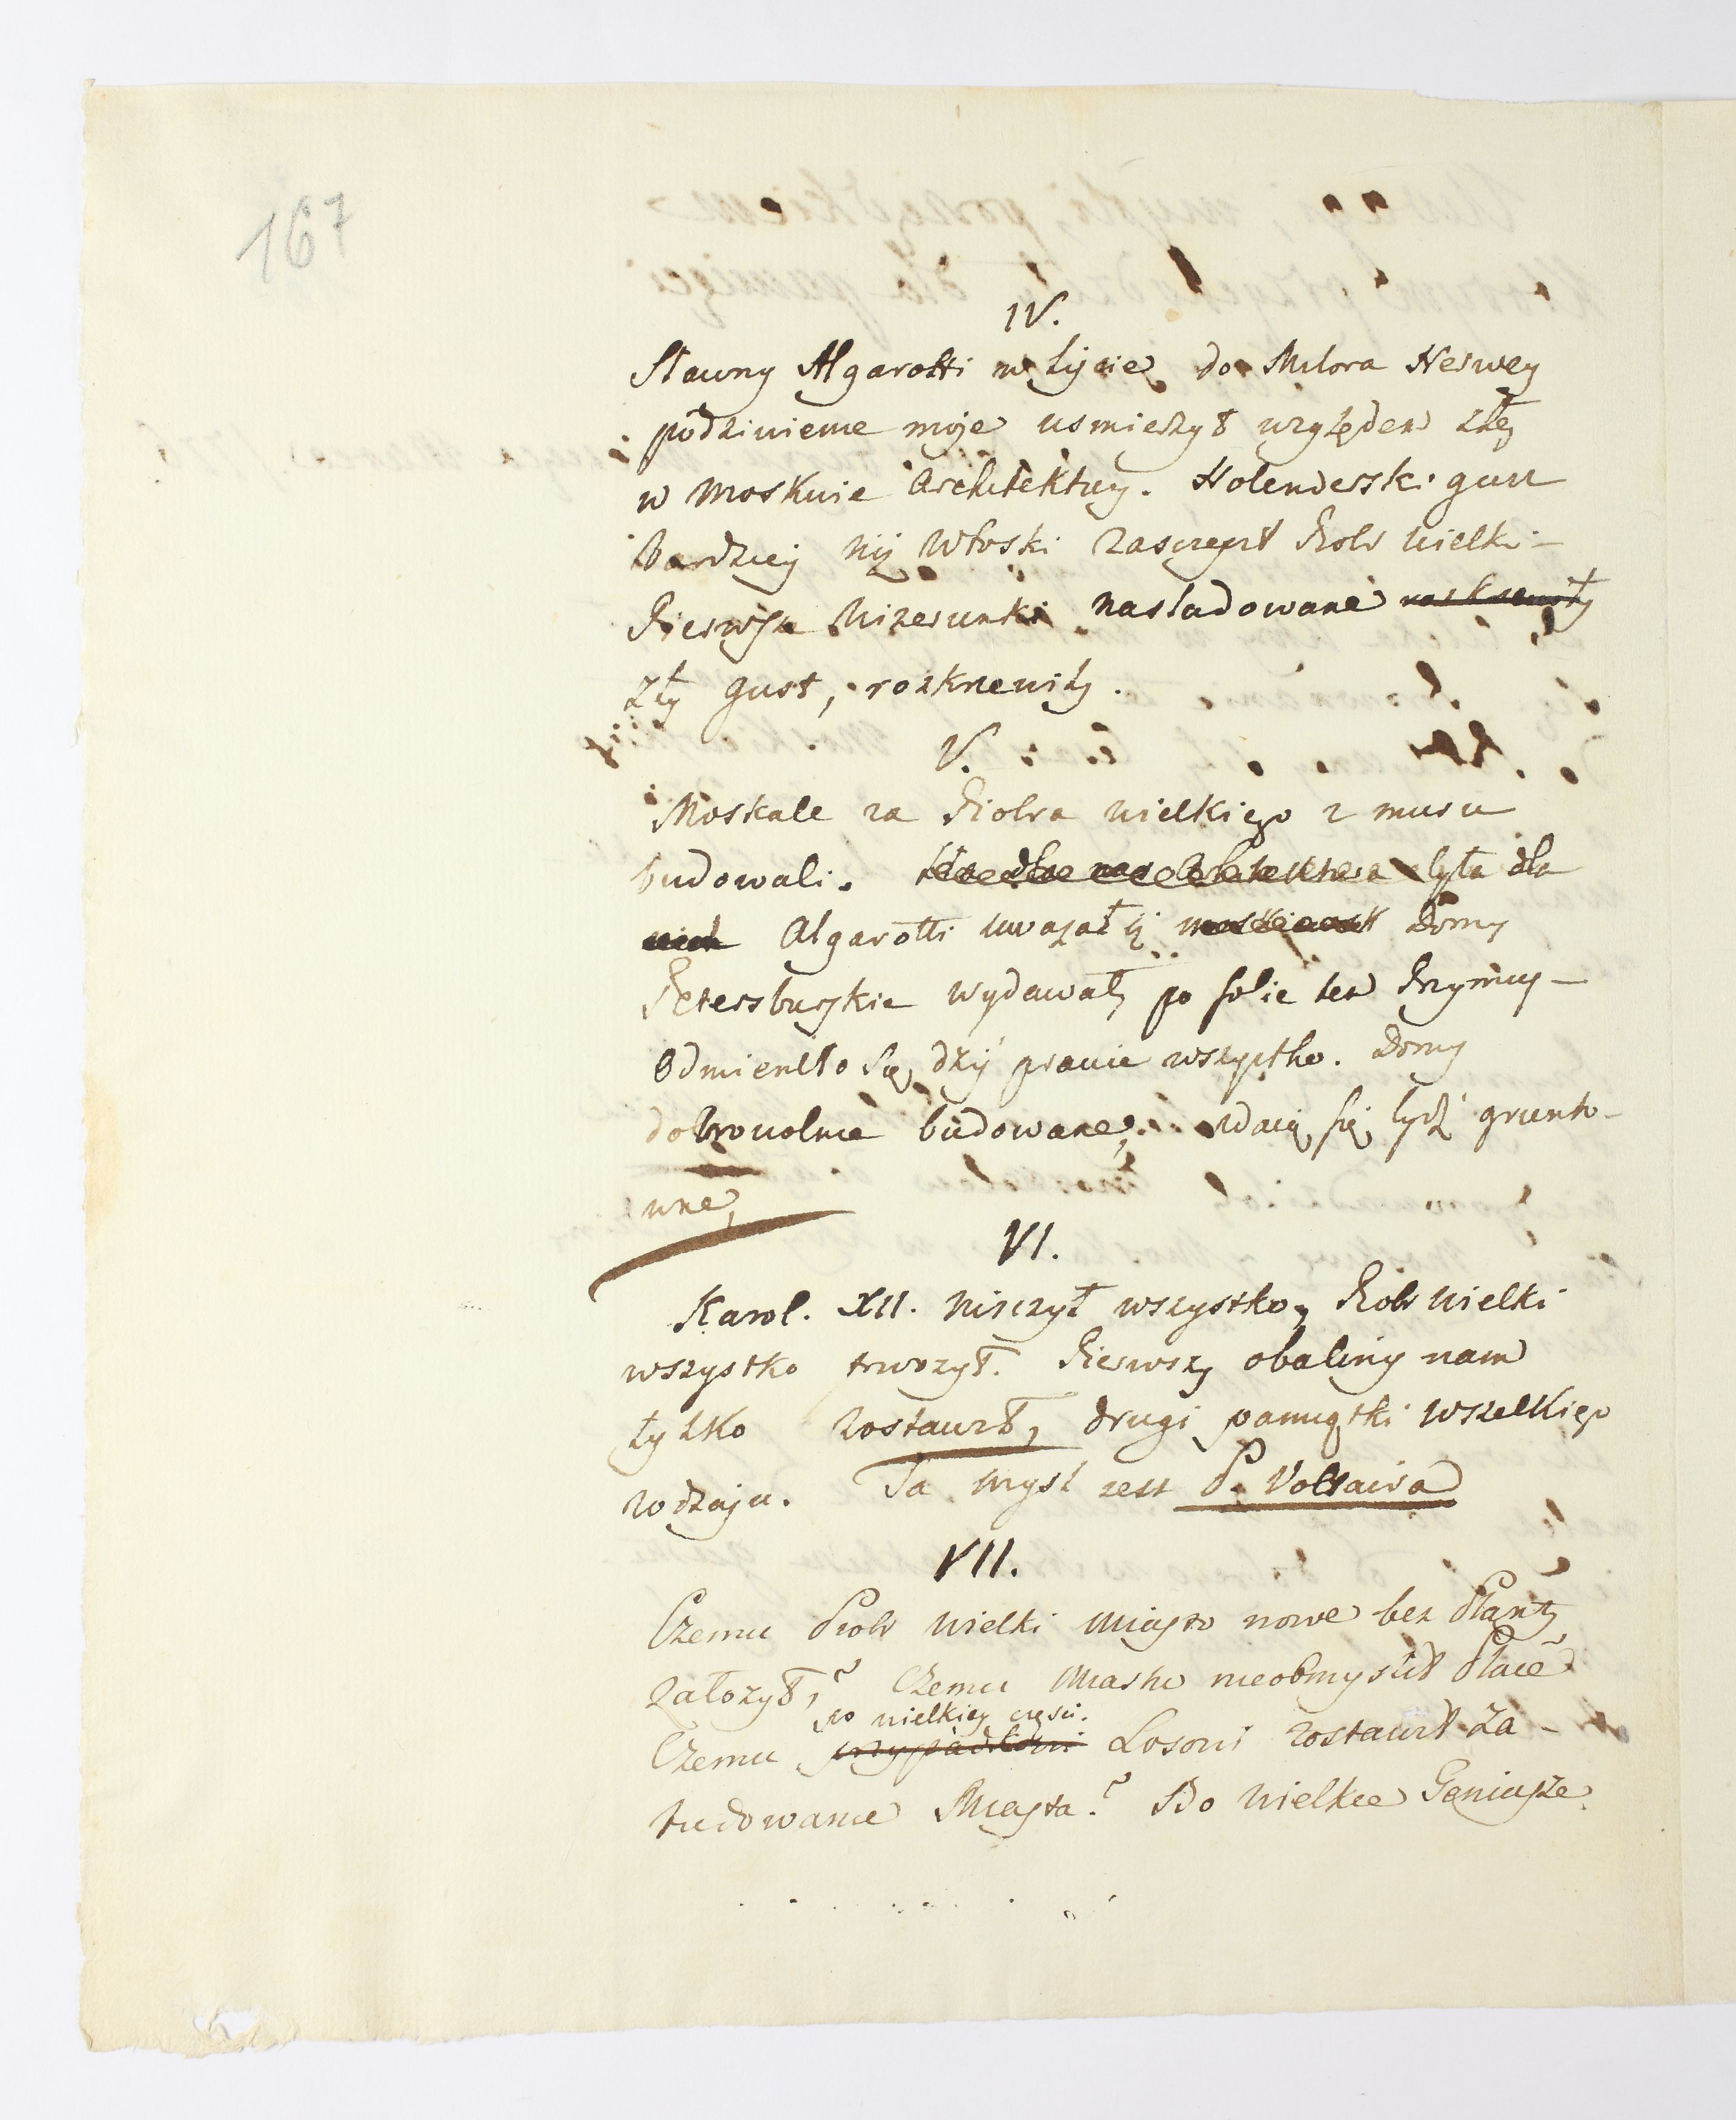 167
IV.
Sławny Algarotti w liście do Milora Herwey
podziwienie moje uśmierzył względem złey
w Moskwie Architektury. Holenderski gust
bardziey niż Włoski zaszczepił Piotr Wielki –
Pierwsze wizerunki nasladowane rozkrzewiły
zły gust, rozkrzewiły.
V.
Moskale za Piotra wielkiego z musu
budowali. była dla
nich Algarotti uważał iż moskiewsk domy
Petersburskie wydawały po sobie ten Przymus –
Odmieniło się dziś prawie wszystko. Domy
dobrowolnie budowane, zdaią się bydź grunto-
wne,
VI.
Karol. XII. niszczył wszystko, Piotr Wielki
wszystko tworzył. Pierwszy obaliny nam
tylko zostawił, drugi pamiątki wszelkiego
rodzaju. Ta myśl jest P. Voltaira
VII.
Czemu Piotr Wielki Miasto nowe bez Planty
założył,? Czemu Miastu nieobmyslił Place
po wielkiey części.
Czemu przypadkowi Losowi zostawił za-
budowanie Miasta? Bo Wielkie Geniusze